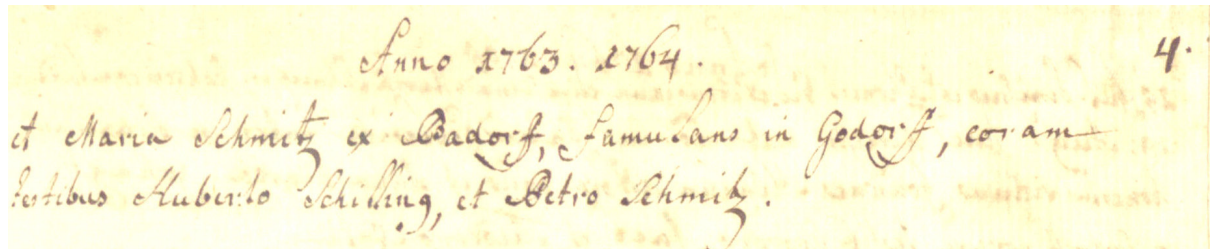 Anno 1763. 1764. 4.
et Maria Schmitz ex Badorff, famulans in Godorff, coram
testibus Huberto Schilling, et Petro Schmitz.